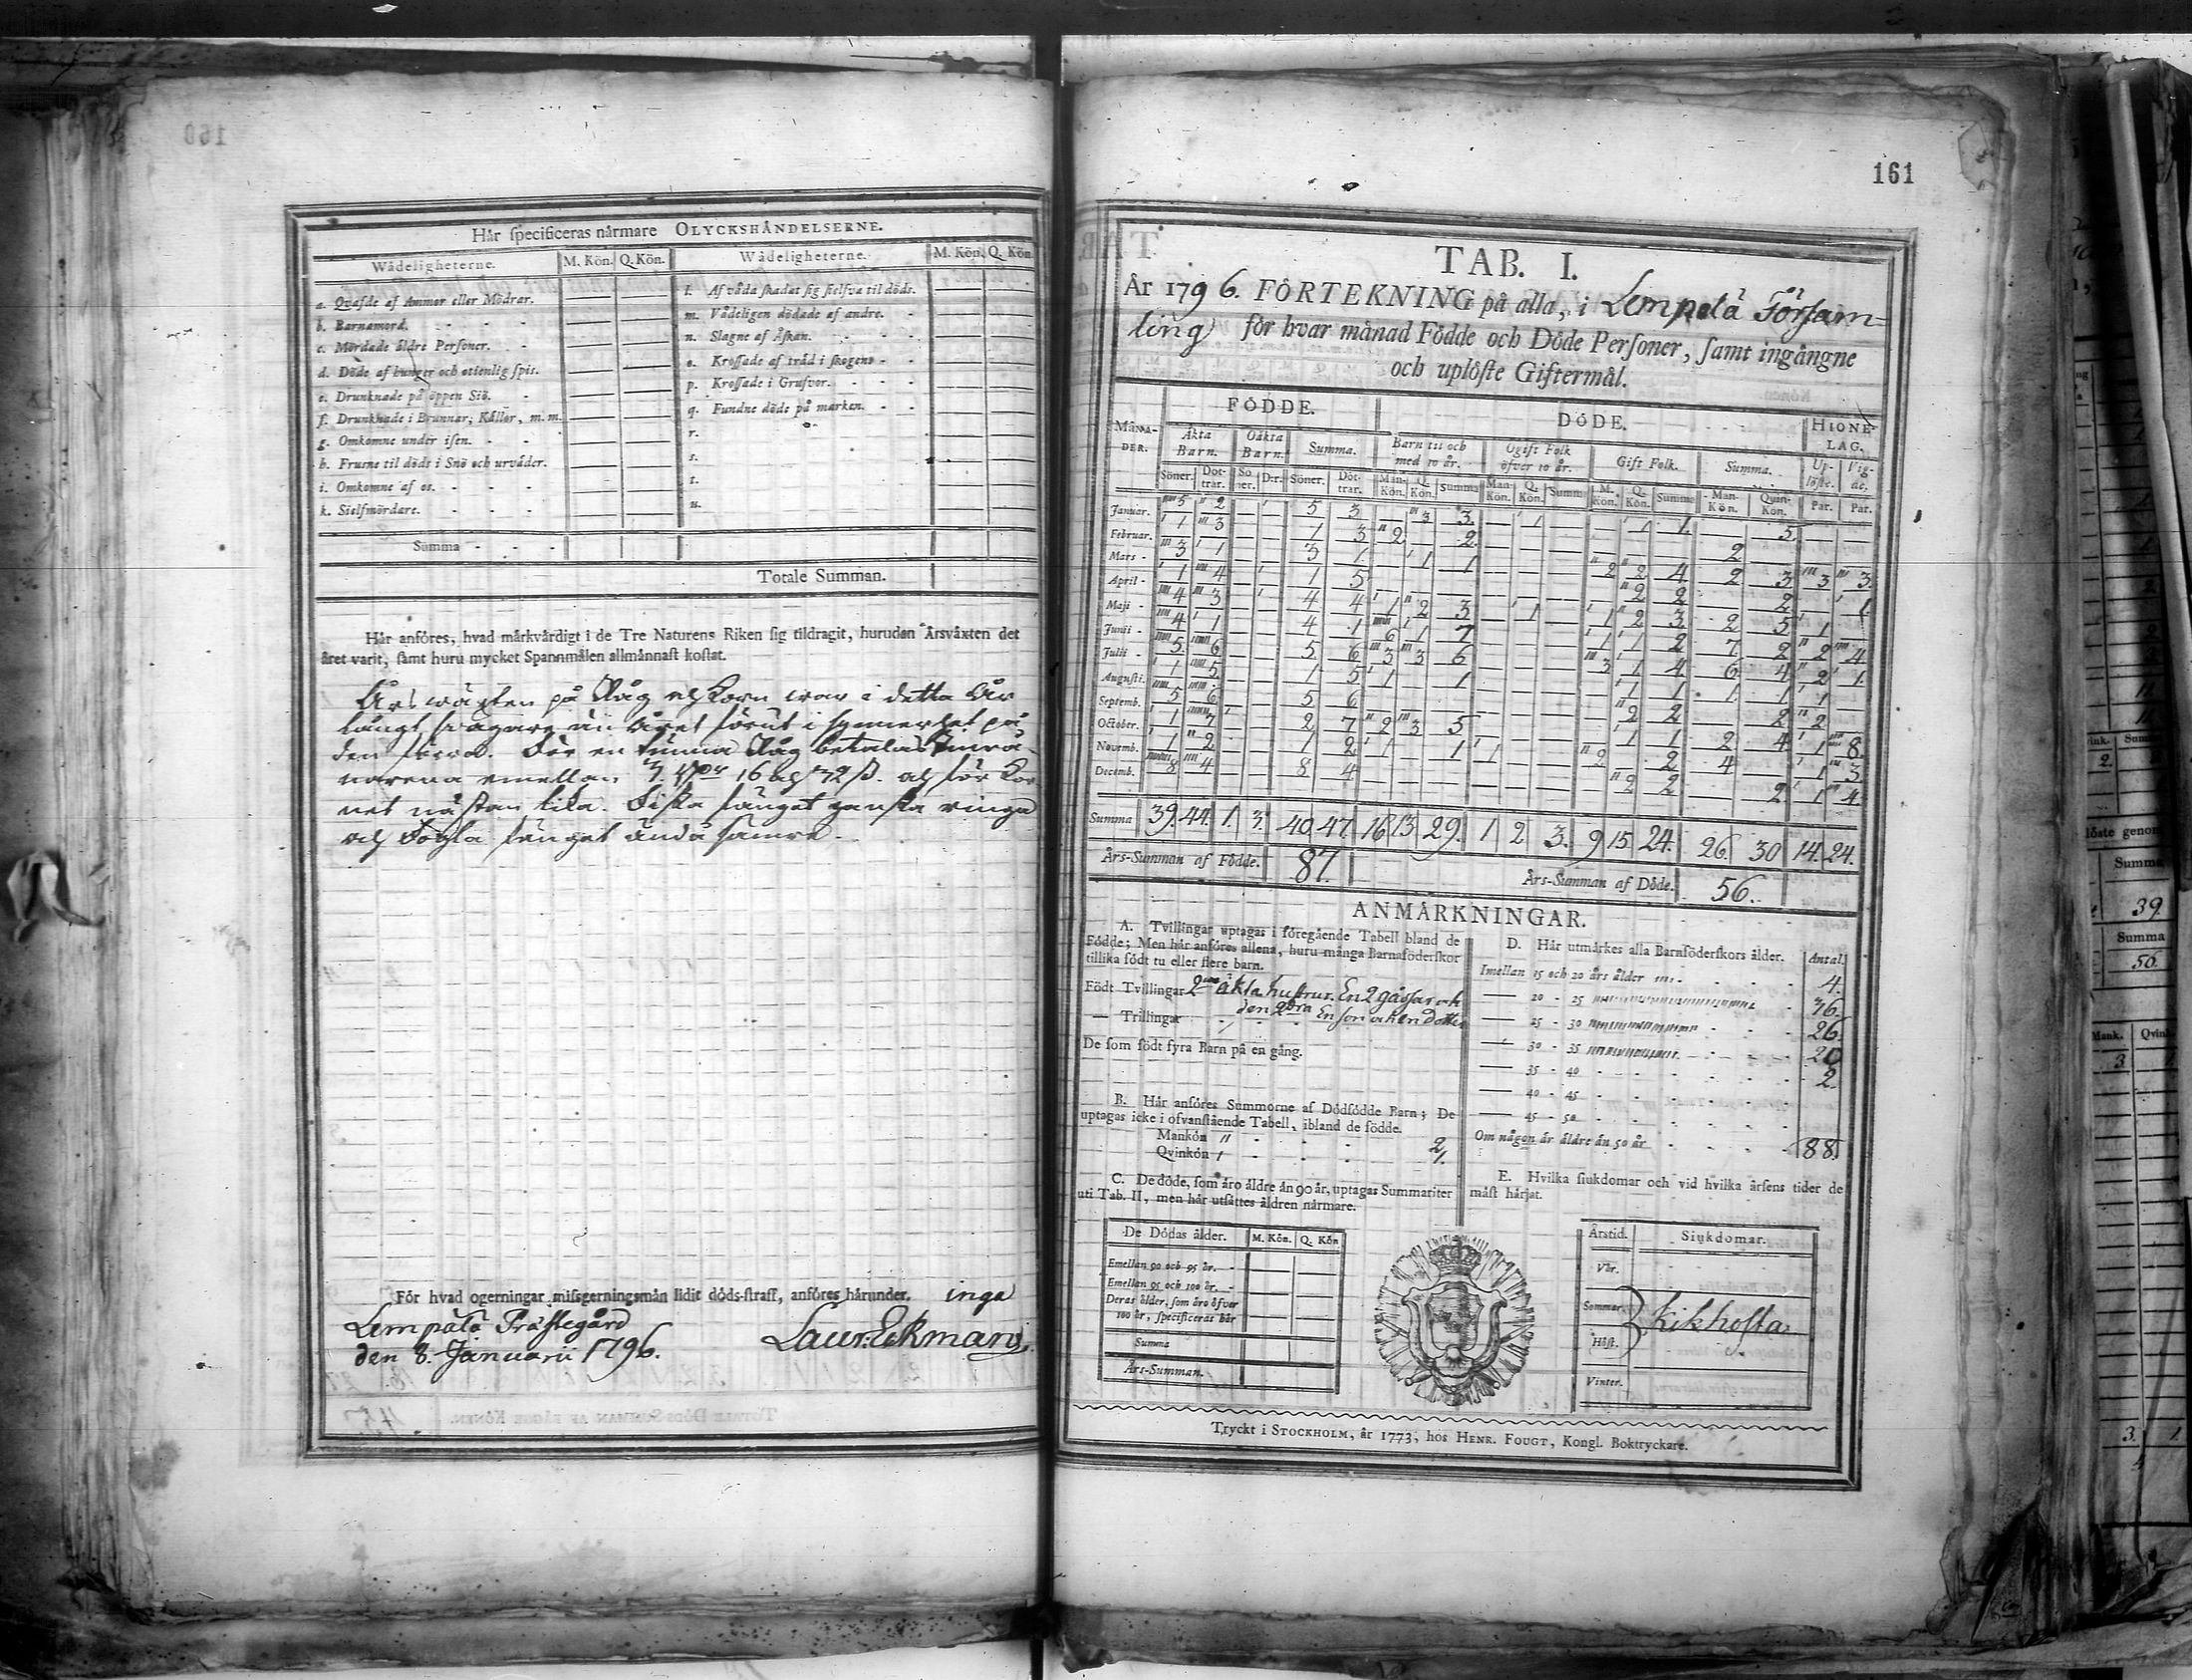 Hår specificeras nårmare OLYCKSHÅNDELSERNE.
Wådeligheterne. M. Kön. Q. Kön. Wådeligheterne. M. Kön. Q. Kön.
a. Qvafde af Ammor eller Mödrar. l. Af våda skadat sig sielfva til döds.
b. Barnamord. m. Vådeligen dödade af andre.
c. Mördade åldre Personer. n. Slagne af Åskan.
d. Döde af hunger och otienlig spis. o. Krossade af tråd i skogens
e. Drunknade på öppen Siö. p. Krossade i Grufvor.
f. Drunknade i Brunnar, Kållor, m. m. q. Fundne döde på marken.
g. Omkomne under isen. r.
h. Frusne til döds i Snö och urvåder. s.
i. Omkomne af os. t.
k. Sielfmördare. u.
Summa
Totale Summan.
Hår anföres, hvad mårkvårdigt i de Tre Naturens Riken sig tildragit, hurudan Årsvåxten det
året varit, samt huru mycket Spannmålen allmånnast kostat.
Årswäxten på Råg och Korn war i detta År
långt swagare än Året förut i synnerhet på
den förra. Där en tunna Råg betalas
emellan 16 32 ß. och för Kor
net nästan lika. Fiska fänget ganska ringa
och Fogla fänget ändå sämre.
För hvad ogerningar missgerningsmån lidit döds-straff, anföres hårunder. inga
Lempälä Prästegård
den 8. Januarii 1796. Laur: Eckman
161
TAB. I.
År 1796. FÖRTEKNING på alla, i Lempälä Församling
för hvar månad Födde och Döde Personer, samt ingångne
och uplöste Giftermål.
MÅNADER. FÖDDE. DÖDE. HIONELAG.
Åkta Barn. Oåkta Barn. Summa. Barn til och med 10 år. Ogift Folk öfver 10 år. Gift Folk. Summa. Uplöste. Vigde.
Söner. Dottrar. Söner. D:r. Söner. Dottrar. Man-Kön. Q. Kön. Summa Man-Kön. Q. Kön. Summa M. Kön. Q. Kön. Summa Man-Kön. Quin-Kön. Par. Par.
Januar. 5 2 1 5 3 3 3 1 1 1 5
Februar. 1 3 1 3 2 2 2
Mars 3 1 3 1 1 1 2 2 4 2 3 3 3
April 1 4 1 1 5 2 2 2 1
Maji 4 3 1 4 4 1 2 3 1 1 2 3 2 5 1
Junii 4 1 4 1 6 1 7 1 1 2 7 2 2 4
Julii 5 6 5 6 3 3 6 3 1 4 6 4 2 1
Augusti. 1 5 1 5 1 1 1 1 1 1 1
Septemb. 5 6 5 6 2 2 2 2
October. 1 7 1 2 7 2 3 5 1 1 2 4 1 8
Novemb. 1 2 1 2 1 1 1 2 2 4 1 3
Decemb. 8 4 8 4 2 2 2 1 4
Summa 39. 44. 1. 3. 40. 47. 16 13 29. 1 2 3. 9 15 24. 26. 30 14. 24.
Års-Summan af Födde. 87. Års-Summan af Döde. 56.
ANMÅRKNINGAR.
A. Tvillingar uptagas i föregående Tabell bland de
Födde; Men hår anföres allena, huru många Barnaföderskor
tillika födt tu eller flere barn.
Födt Tvillingar 2ne äkta hustrur. En 2 gåssar och
den 2dra En son och en dotter
— Trillingar
De som födt fyra Barn på en gång.
B. Hår anföres Summorne af Dödfödde Barn; De
uptagas icke i ofvanstående Tabell, ibland de födde.
Mankön 2
Qvinkön 1.
C. De döde, som åro åldre ån 90 år, uptagas Summariter
uti Tab. II, men hår utsåttes åldren nårmare.
De Dödas ålder. M. Kön. Q. Kön
Emellan 90 och 95 år.
Emellan 95 och 100 år.
Deras ålder, som åro öfver
100 år, specificeras hår
Summa
Års-Summan.
D. Hår utmårkes alla Barnföderskors ålder. Antal.
Imellan 15 och 20 års ålder 4.
— 20 - 25 36.
— 25 - 30 26.
— 30 - 35 20
— 35 - 40 2.
— 40 - 45
— 45 - 50
Om någon år åldre ån 50 år 88.
E. Hvilka siukdomar och vid hvilka årsens tider de
måst hårjat.
Årstid. Siukdomar.
Vår.
Sommar.
Kikhosta
Höst.
Vinter.
Tryckt i STOCKHOLM, år 1773, hos HENR. FOUGT, Kongl. Boktryckare.